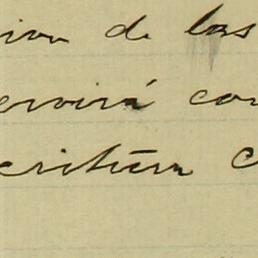 ion de las
ervirá con
critura C